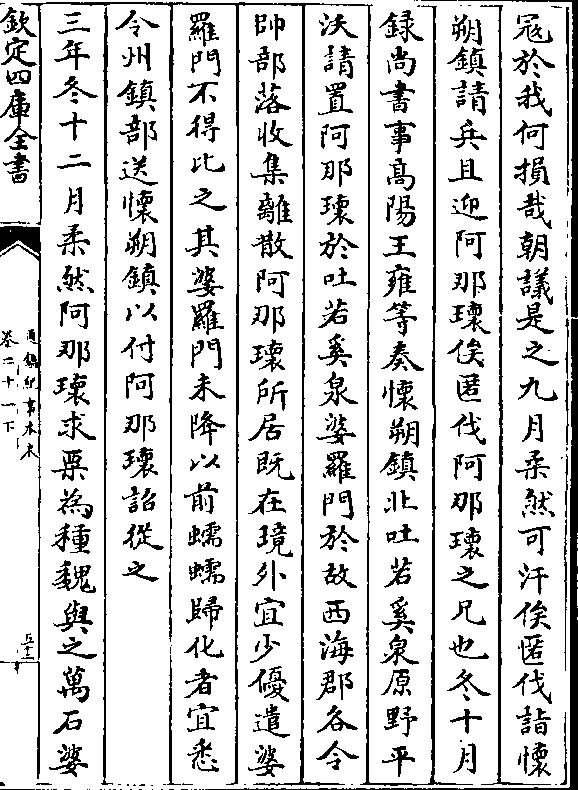 寇於我何損哉朝議是之九月柔然可汗俟匿伐詣懷
朔鎮請兵且迎阿那瓌俟匿伐阿那瓌之兄也冬十月
録尚書事髙陽王雍等奏懷朔鎮北吐若奚泉原野平
沃請置阿那瓌於吐若奚泉婆羅門於故西海郡各令
帥部落收集離散阿那瓌所居既在境外宜少優遣婆
羅門不得比之其婆羅門未降以前蠕蠕歸化者宜悉
令州鎮部送懷朔鎮以付阿那瓌詔從之
三年冬十二月柔然阿那瓌求粟為種魏與之萬石婆
欽定四庫全書
通鑑紀事本末
卷二十一下
五十三